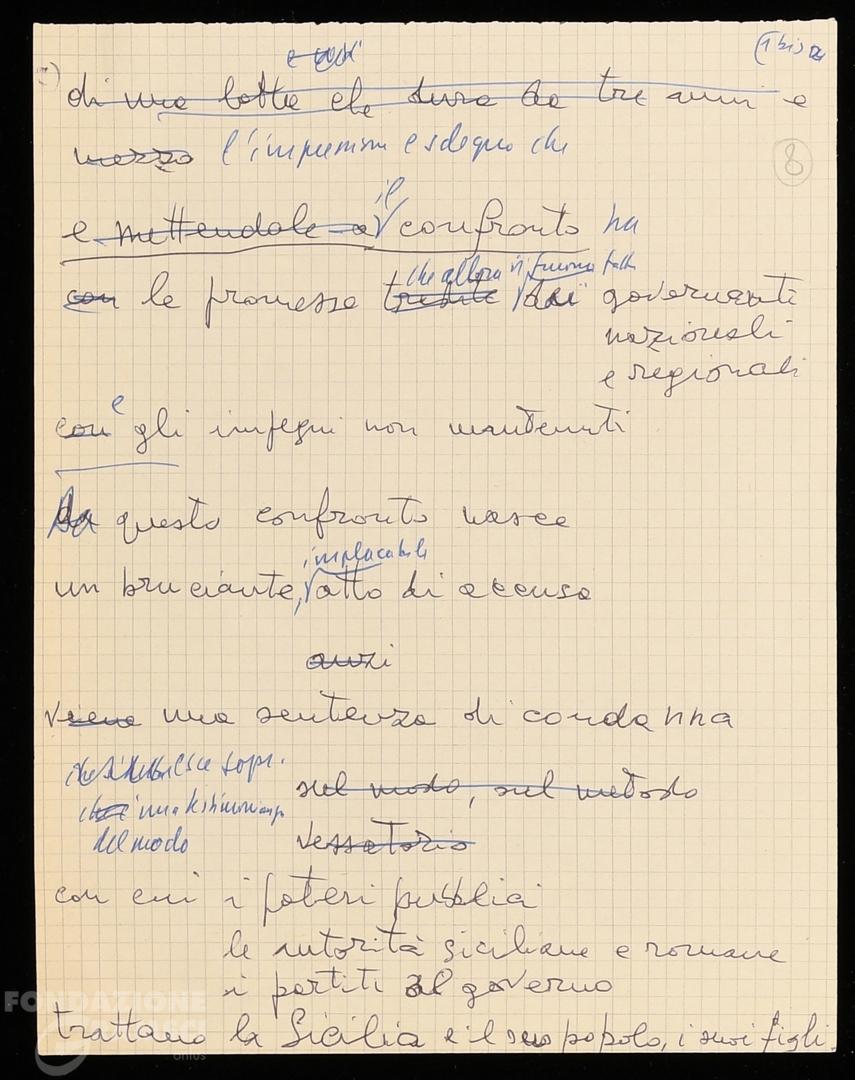 (1 bis)
8
e così
di una lotta che dura da tre anni e
mezzo l'impressione e sdegno che
il
e mettendole a confronto ha
che allora furono fatte
con le promesse dai governanti
nazionali
e regionali
con e gli impegni non mantenuti
Da questo confronto nasce
implacabile
un bruciante, atto di accusa
anzi
una sentenza di condanna
sul modo, sul metodo
una testimonianza
vessatorio
del modo
con cui i poteri pubblici
le autorità siciliane e romane
i partiti al governo
trattano la Sicilia e il suo popolo, i suoi figli.
FONDAZIONE
onlus